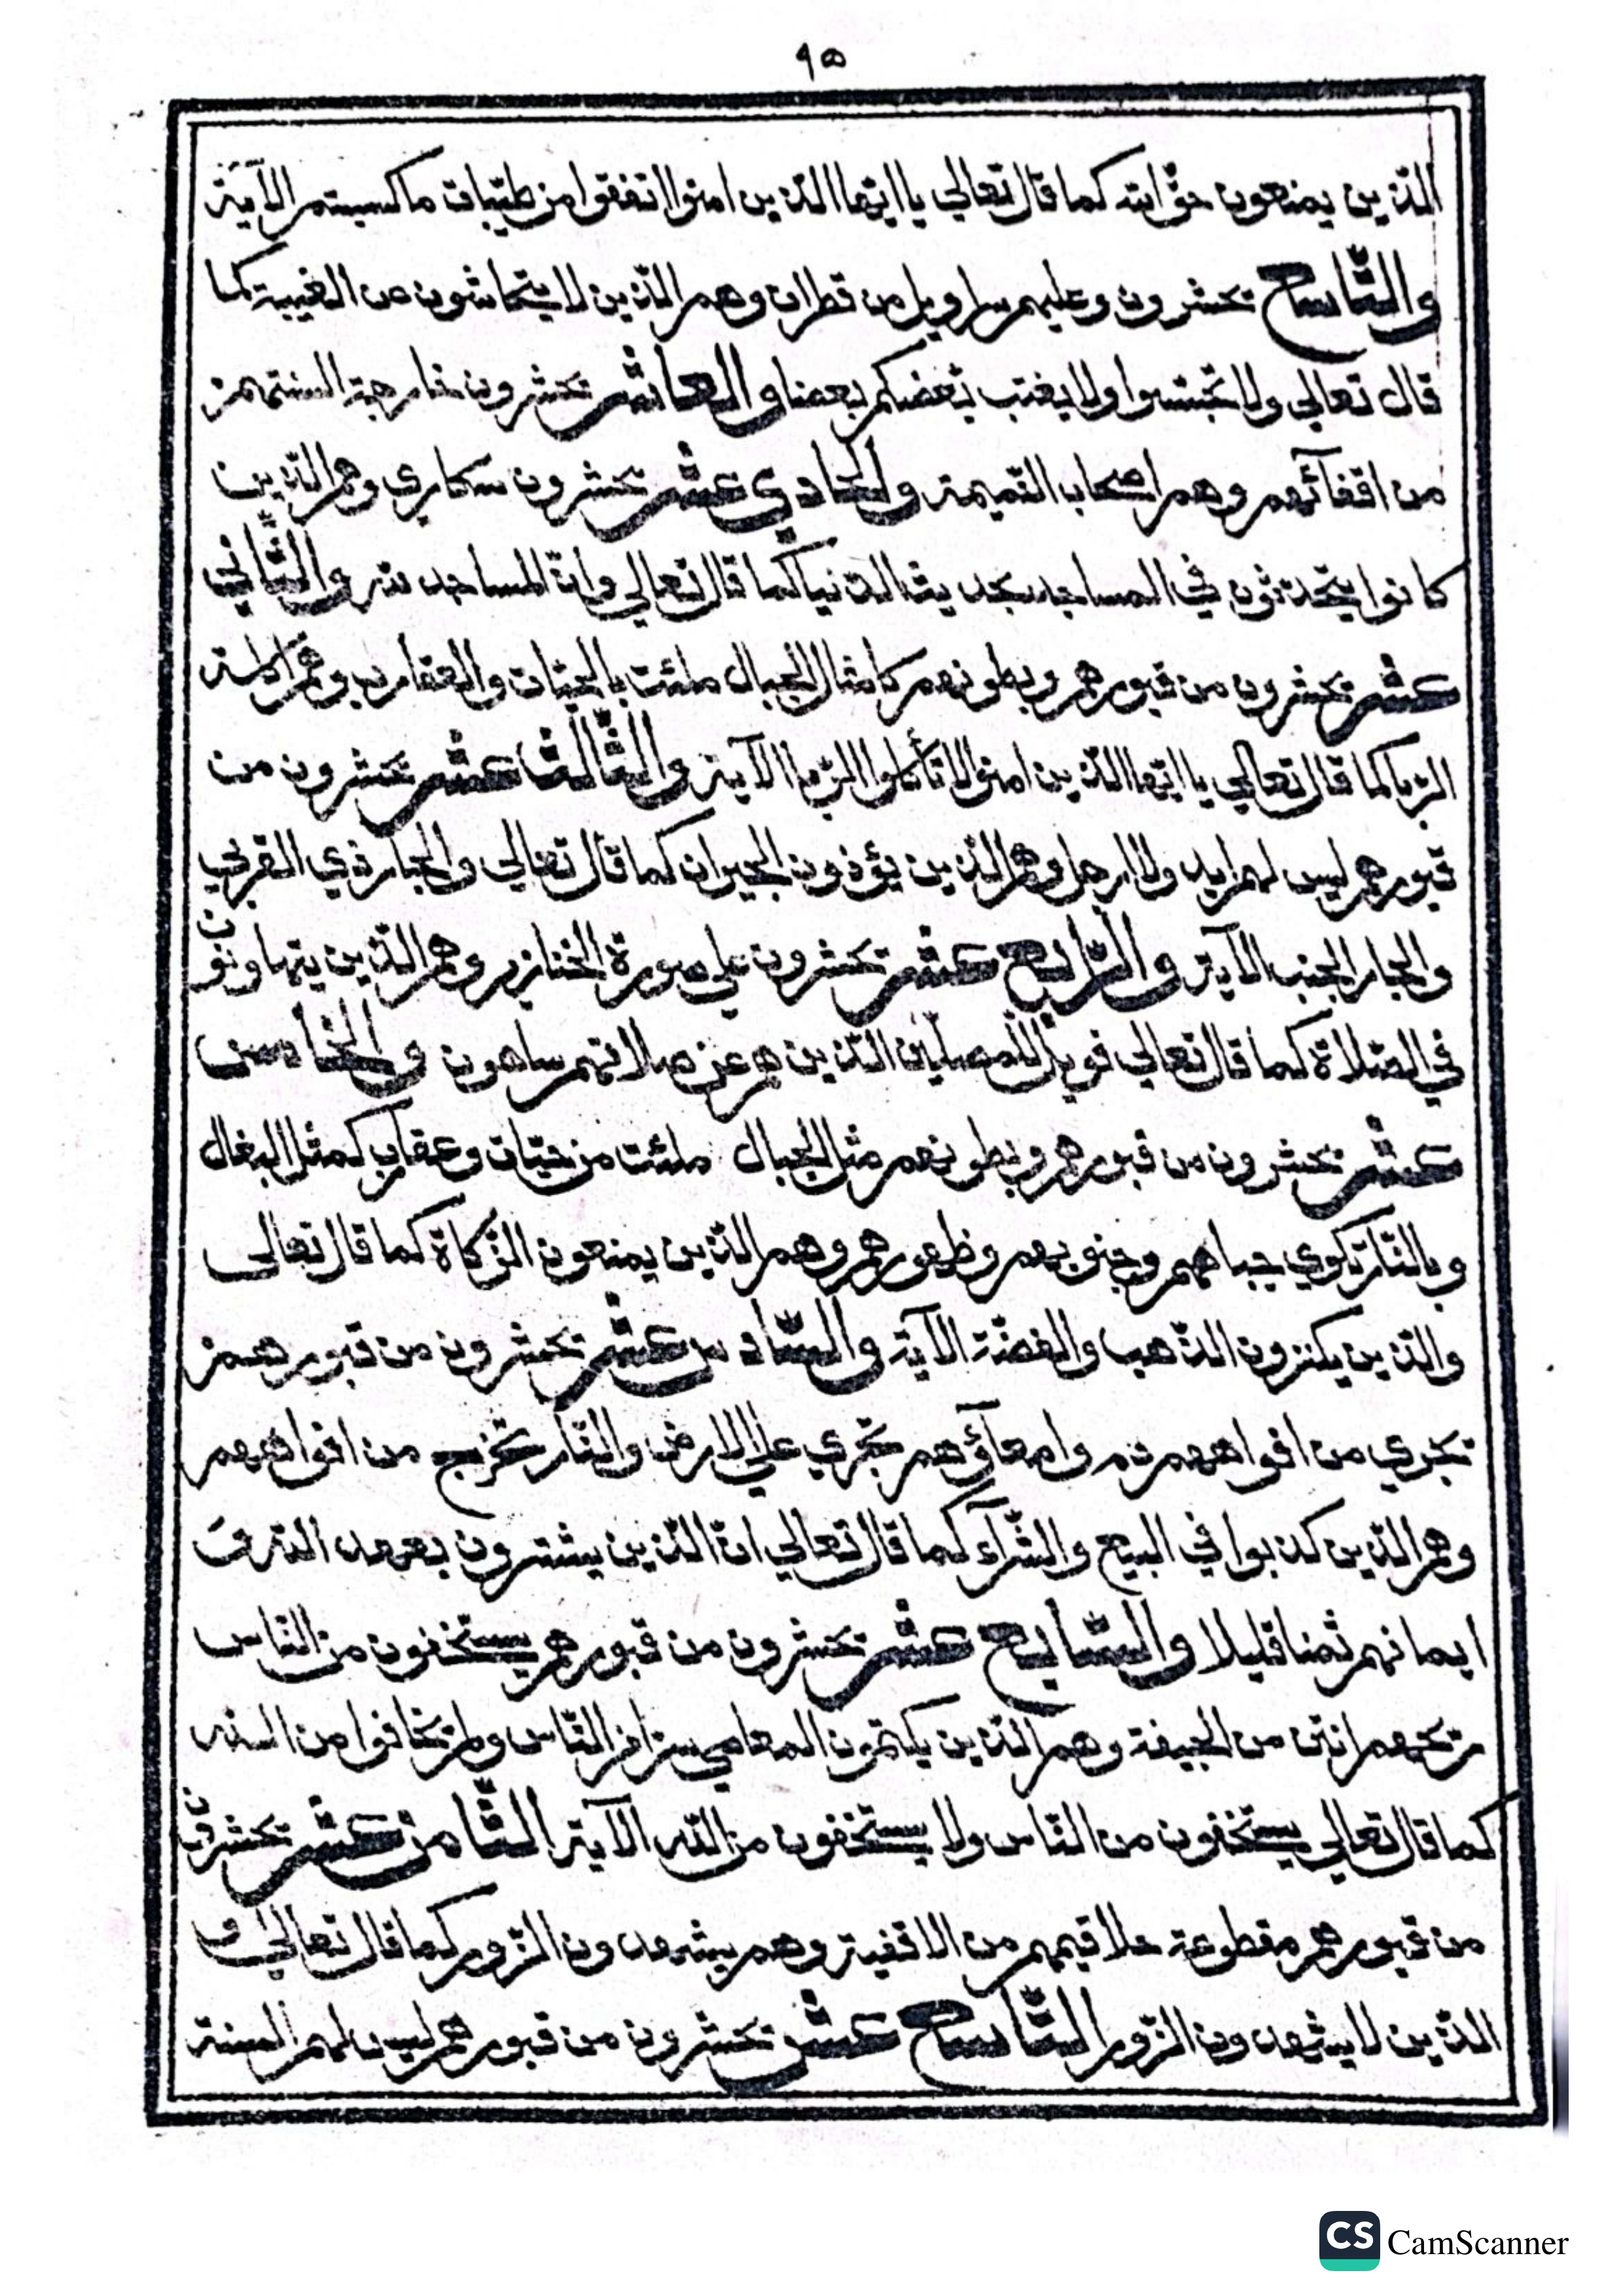 ٩٥
الذين يمنعون حق الله كما قال تعالي يا ايها الذين امنوا انفقوا من طيبات ما كسبتم الآية
والتاسع تحشرون وعليهم سراويل من قطران وهم الذين لا يتحاشون من الغيبة كما
قال تعالي ولا تجسسوا ولا يغتب بعضكم بعضا والعاشر تحشرون خارجة السنتهم
من اقفآئهم وهم اصحاب النميمة والحادي عشر تحشرون سكاري وهم الذين
كانوا يتحدثون في المساجد بحديث الدنيا كما قال تعالي وان المساجد لله والثاني
عشر تحشرون من قبورهم وبطونهم كامثال الجبال ملئت بالحيات والعقارب وهم اكلة
الربا كما قال تعالي يا ايها الذين امنوا لا تأكلوا الربا الآية والثالث عشر تحشرون من
قبورهم ليس لهم ايد ولا ارجل وهم الذين يؤذون الجيران كما قال تعالي والجار ذي القربي
والجار الجنب الآية والرابع عشر تحشرون علي صورة الخنازير وهم الذين يتهاونون
في الصلاة كما قال تعالي فويل للمصلين الذين هم عن صلاتهم ساهون والخامس
عشر تحشرون من قبورهم وبطونهم مثل الجبال ملئت من حيات وعقارب كمثل البغال
وبالنار تكوي جباههم وجنوبهم وظهورهم وهم الذين يمنعون الزكاة كما قال تعالى
والذين يكنزون الذهب والفضة الآية والسادس عشر تحشرون من قبورهم
تجري من افواههم دم وامعآؤهم تجري علي الارض والنار تخرج من افواههم
وهم الذين كذبوا في البيع والشرآء كما قال تعالي ان الذين يشترون بعهد الله
ايمانهم ثمنا قليلا والسابع عشر تحشرون من قبورهم يستخفون من الناس
ريحهم انتن من الجيفة وهم الذين يكتمون المعاصي سرا من الناس ولم يخافوا من الله
كما قال تعالي يستخفون من الناس ولا يستخفون من الله الآية الثامن عشر تحشرون
من قبورهم مقطوعة حلاقيمهم من الاقفية وهم يشهدون الزور كما قال تعالي و
الذين لا يشهدون الزور التاسع عشر تحشرون من قبورهم ليس لهم السنة
CS CamScanner